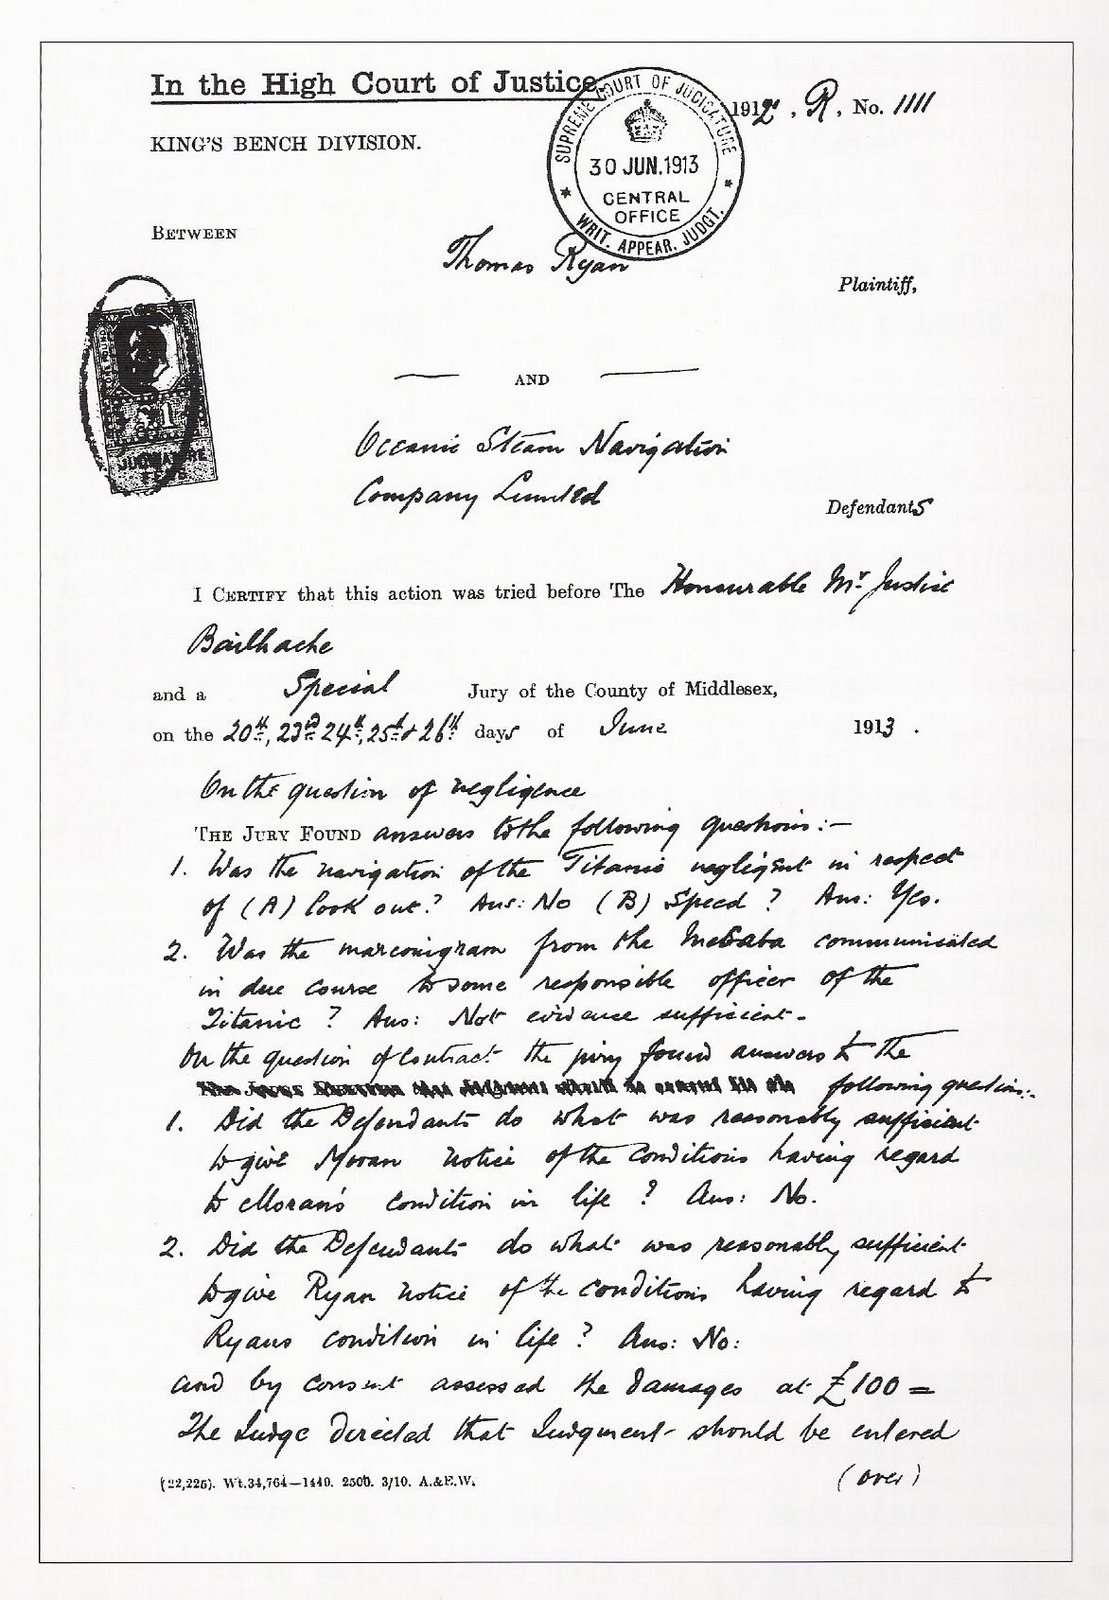 In the High Court of Justice.
1912, R, No. 1111
KING'S BENCH DIVISION.
SUPREME COURT OF JUDICATURE
30 JUN. 1913
CENTRAL
OFFICE
WRIT. APPEAR. JUDGT.
BETWEEN
Thomas Ryan
Plaintiff,
£1
AND
Oceanic Steam Navigation
Company Limited
Defendants
I CERTIFY that this action was tried before The Honourable Mr. Justice
Bailhache
and a Special Jury of the County of Middlesex,
on the 20th, 23rd 24th, 25th & 26th days of June 1913.
On the question of negligence
THE JURY FOUND answers to the following questions:—
1. Was the navigation of the Titanic negligent in respect
of (A) look out? Ans: No (B) Speed? Ans: Yes.
2. Was the marconigram from the Mesaba communicated
in due course to some responsible officer of the
Titanic? Ans: Not evidence sufficient.
On the question of contract the jury found answers to the
following question:-
1. Did the Defendants do what was reasonably sufficient
to give Moran notice of the conditions having regard
to Moran's condition in life? Ans: No.
2. Did the Defendants do what was reasonably sufficient
to give Ryan notice of the conditions having regard to
Ryans condition in life? Ans: No:
and by consent assessed the damages at £100=
The Judge directed that Judgment should be entered
(22,225). Wt.34,764—1449. 2500. 3/10. A.&E.W.
(over)